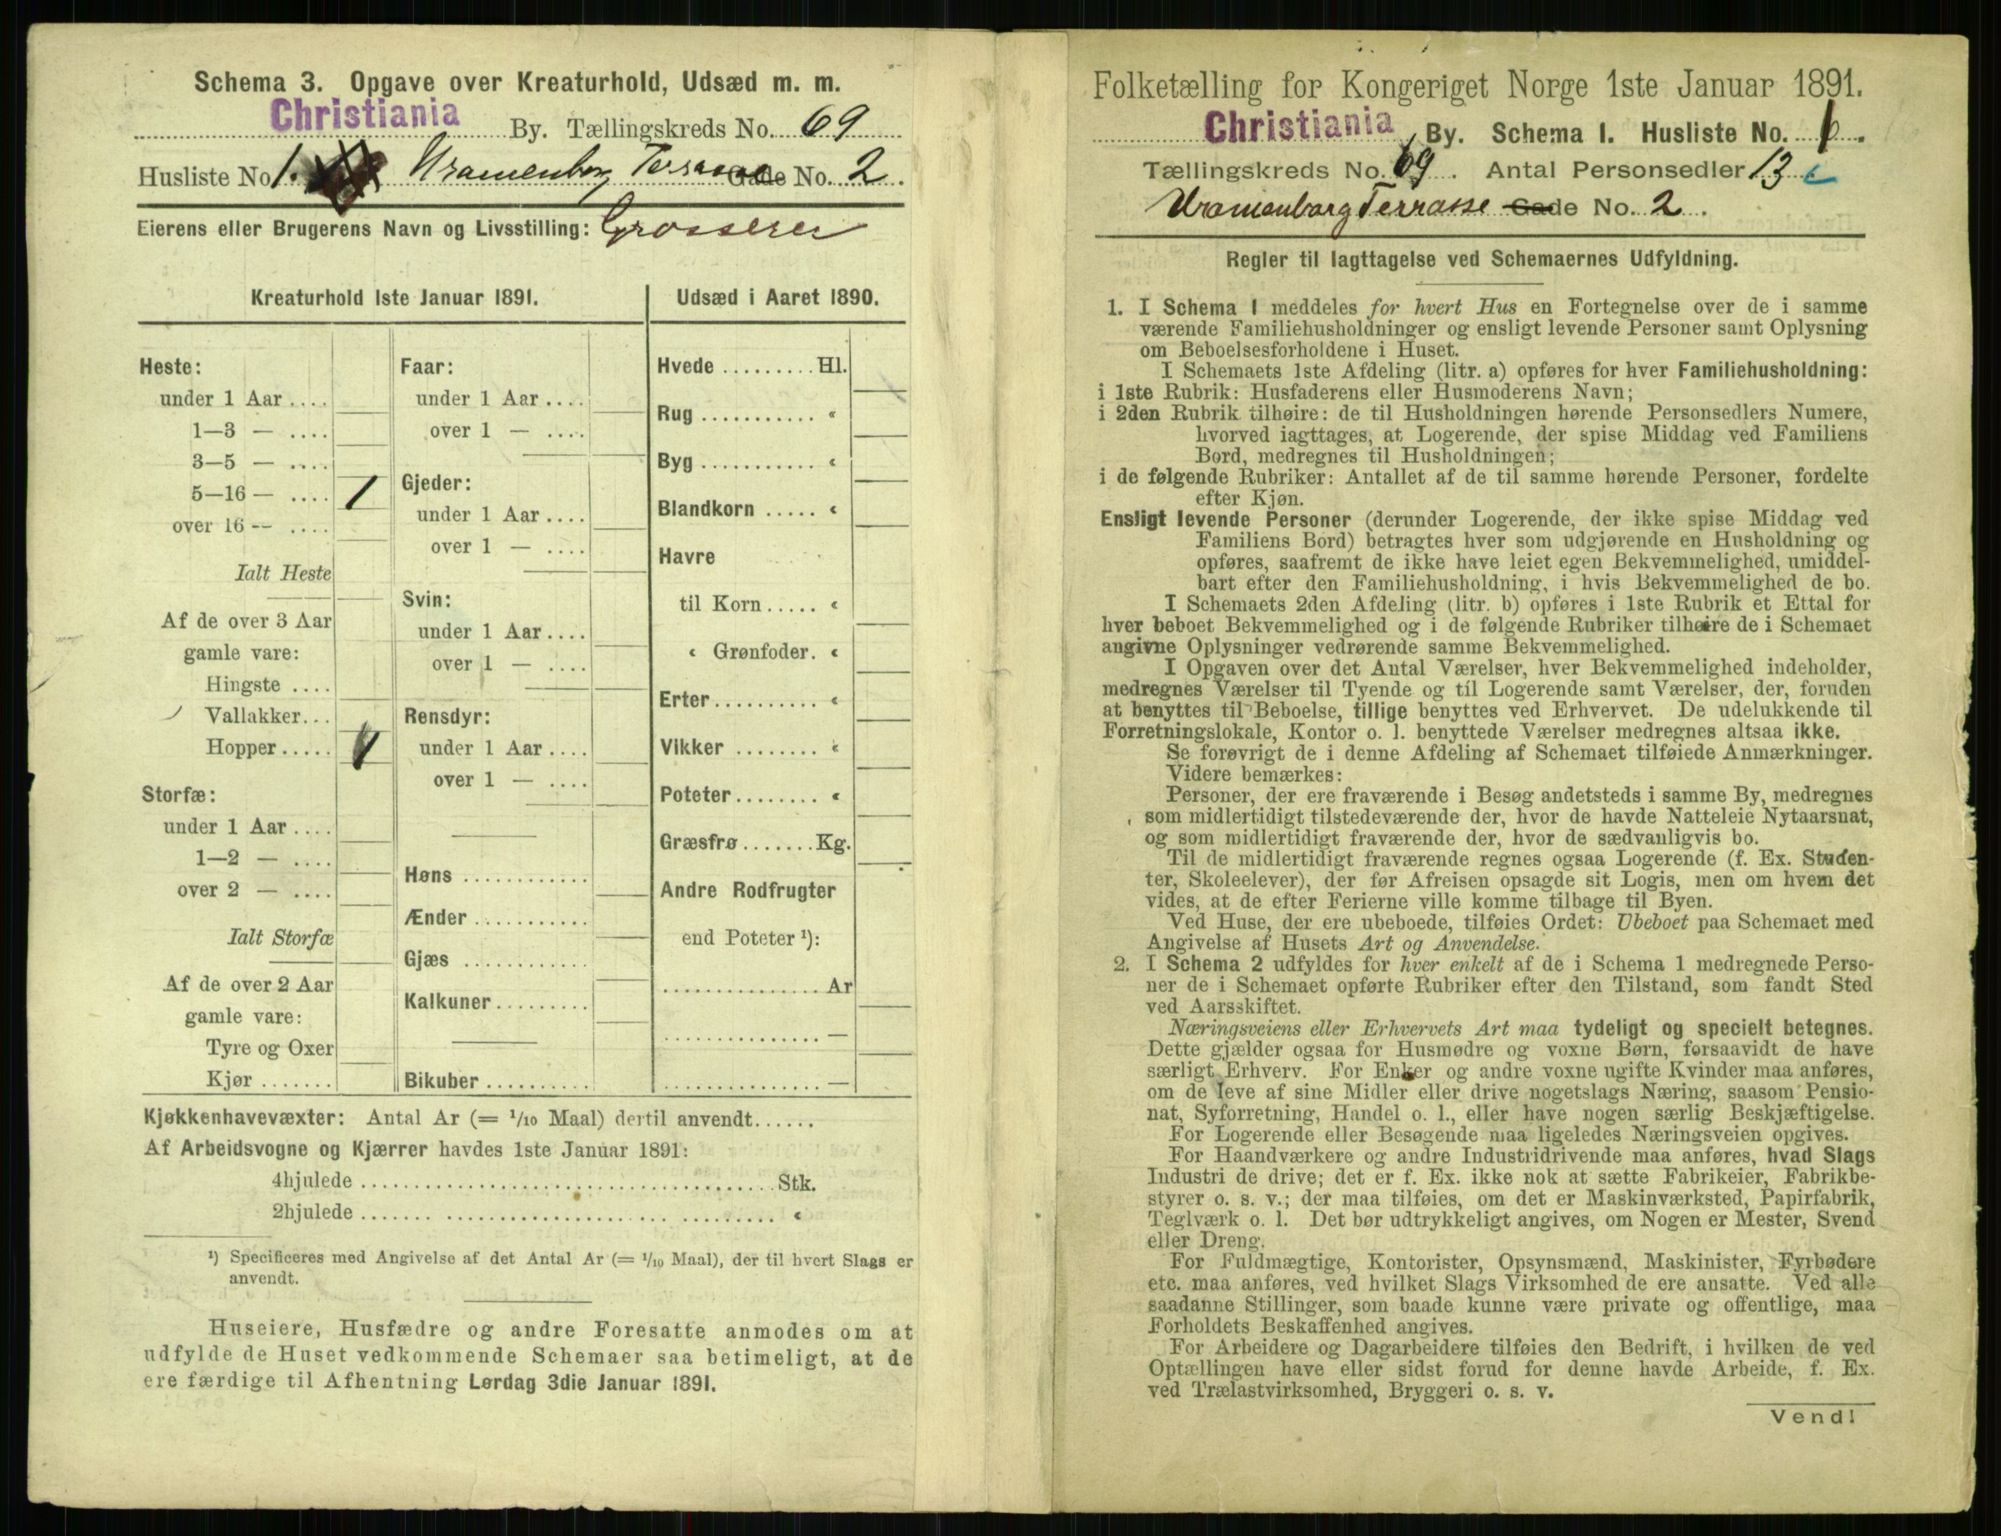 Schema 3. Opgave over Kreaturhold, Udsæd m. m.
Christiania By. Tællingskreds No. 69
Husliste No. 1. Uranienborg Terrasse Gade No. 2.
Eierens eller Brugerens Navn og Livsstilling: Grosserer
Kreaturhold 1ste Januar 1891.
Heste:
under 1 Aar ....
1—3 — ....
3—5 — ....
5—16 — .... 1
over 16 -- ....
Ialt Heste
Af de over 3 Aar
gamle vare:
Hingste ....
Vallakker...
Hopper..... 1
Storfæ:
under 1 Aar ....
1—2 — ....
over 2 — ....
Ialt Storfæ
Af de over 2 Aar
gamle vare:
Tyre og Oxer
Kjør .......
Faar:
under 1 Aar ....
over 1 — ....
Gjeder:
under 1 Aar ....
over 1 — ....
Svin:
under 1 Aar ....
over 1 — ....
Rensdyr:
under 1 Aar ....
over 1 — ....
Høns ............
Ænder ...........
Gjæs ............
Kalkuner.........
Bikuber ..........
Udsæd i Aaret 1890.
Hvede ......... Hl.
Rug ........... «
Byg ........... «
Blandkorn ..... «
Havre
til Korn ..... «
« Grønfoder. «
Erter .......... «
Vikker ........ «
Poteter ........ «
Græsfrø ....... Kg.
Andre Rodfrugter
end Poteter ¹):
............... Ar
............... —
............... —
Kjøkkenhavevæxter: Antal Ar (= 1/10 Maal) dertil anvendt......
Af Arbeidsvogne og Kjærrer havdes 1ste Januar 1891:
4hjulede ........................................ Stk.
2hjulede ........................................ «
¹) Specificeres med Angivelse af det Antal Ar (= 1/10 Maal), der til hvert Slags er
anvendt.
Huseiere, Husfædre og andre Foresatte anmodes om at
udfylde de Huset vedkommende Schemaer saa betimeligt, at de
ere færdige til Afhentning Lørdag 3die Januar 1891.
Folketælling for Kongeriget Norge 1ste Januar 1891.
Christiania By. Schema 1. Husliste No. 1.
Tællingskreds No. 69. Antal Personsedler 13.
Uranienborg Terrasse Gade No. 2.
Regler til Iagttagelse ved Schemaernes Udfyldning.
1. I Schema 1 meddeles for hvert Hus en Fortegnelse over de i samme
værende Familiehusholdninger og ensligt levende Personer samt Oplysning
om Beboelsesforholdene i Huset.
I Schemaets 1ste Afdeling (litr. a) opføres for hver Familiehusholdning:
i 1ste Rubrik: Husfaderens eller Husmoderens Navn;
i 2den Rubrik tilhøire: de til Husholdningen hørende Personsedlers Numere,
hvorved iagttages, at Logerende, der spise Middag ved Familiens
Bord, medregnes til Husholdningen;
i de følgende Rubriker: Antallet af de til samme hørende Personer, fordelte
efter Kjøn.
Ensligt levende Personer (derunder Logerende, der ikke spise Middag ved
Familiens Bord) betragtes hver som udgjørende en Husholdning og
opføres, saafremt de ikke have leiet egen Bekvemmelighed, umiddel-
bart efter den Familiehusholdning, i hvis Bekvemmelighed de bo.
I Schemaets 2den Afdeling (litr. b) opføres i 1ste Rubrik et Ettal for
hver beboet Bekvemmelighed og i de følgende Rubriker tilhøire de i Schemaet
angivne Oplysninger vedrørende samme Bekvemmelighed.
I Opgaven over det Antal Værelser, hver Bekvemmelighed indeholder,
medregnes Værelser til Tyende og til Logerende samt Værelser, der, foruden
at benyttes til Beboelse, tillige benyttes ved Erhvervet. De udelukkende til
Forretningslokale, Kontor o. l. benyttede Værelser medregnes altsaa ikke.
Se forøvrigt de i denne Afdeling af Schemaet tilføiede Anmærkninger.
Videre bemærkes:
Personer, der ere fraværende i Besøg andetsteds i samme By, medregnes
som midlertidigt tilstedeværende der, hvor de havde Natteleie Nytaarsnat,
og som midlertidigt fraværende der, hvor de sædvanligvis bo.
Til de midlertidigt fraværende regnes ogsaa Logerende (f. Ex. Studen-
ter, Skoleelever), der før Afreisen opsagde sit Logis, men om hvem det
vides, at de efter Ferierne ville komme tilbage til Byen.
Ved Huse, der ere ubeboede, tilføies Ordet: Ubeboet paa Schemaet med
Angivelse af Husets Art og Anvendelse.
2. I Schema 2 udfyldes for hver enkelt af de i Schema 1 medregnede Perso-
ner de i Schemaet opførte Rubriker efter den Tilstand, som fandt Sted
ved Aarsskiftet.
Næringsveiens eller Erhvervets Art maa tydeligt og specielt betegnes.
Dette gjælder ogsaa for Husmødre og voxne Børn, forsaavidt de have
særligt Erhverv. For Enker og andre voxne ugifte Kvinder maa anføres,
om de leve af sine Midler eller drive nogetslags Næring, saasom Pensio-
nat, Syforretning, Handel o. l., eller have nogen særlig Beskjæftigelse.
For Logerende eller Besøgende maa ligeledes Næringsveien opgives.
For Haandværkere og andre Industridrivende maa anføres, hvad Slags
Industri de drive; det er f. Ex. ikke nok at sætte Fabrikeier, Fabrikbe-
styrer o. s. v.; der maa tilføies, om det er Maskinværksted, Papirfabrik,
Teglværk o. l. Det bør udtrykkeligt angives, om Nogen er Mester, Svend
eller Dreng.
For Fuldmægtige, Kontorister, Opsynsmænd, Maskinister, Fyrbødere
etc. maa anføres, ved hvilket Slags Virksomhed de ere ansatte. Ved alle
saadanne Stillinger, som baade kunne være private og offentlige, maa
Forholdets Beskaffenhed angives.
For Arbeidere og Dagarbeidere tilføies den Bedrift, i hvilken de ved
Optællingen have eller sidst forud for denne havde Arbeide, f. Ex.
ved Trælastvirksomhed, Bryggeri o. s. v.
Vend!